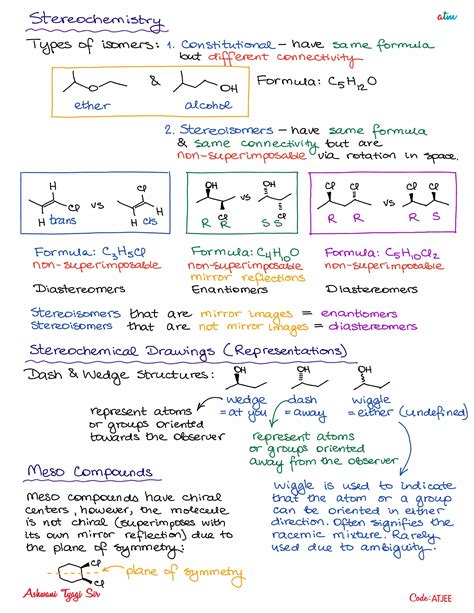 Stereochemistry
atm
Types of isomers: 1. Constitutional – have same formula
but different connectivity
& OH Formula: C5H12O
O
ether alcohol
2. Stereoisomers – have same formula
& same connectivity but are
non-superimposable via rotation in space.
H Cl OH OH Cl Cl Cl Cl
Cl vs vs vs
H trans H H cis Cl R R Cl S S R R R S
Formula: C3H5Cl Formula: C4H10O Formula: C5H10Cl2
non-superimposable non-superimposable non-superimposable
mirror reflections
Diastereomers Enantiomers Diastereomers
Stereoisomers that are mirror images = enantiomers
Stereoisomers that are not mirror images = diastereomers
Stereochemical Drawings (Representations)
Dash & Wedge Structures: OH OH OH
wedge dash wiggle
= at you = away = either (undefined)
represent atoms
or groups oriented
towards the observer
represent atoms
or groups oriented
away from the observer
wiggle is used to indicate
that the atom or a group
can be oriented in either
direction. Often signifies the
racemic mixture. Rarely
used due to ambiguity.
Meso Compounds
Meso compounds have chiral
centers, however, the molecule
is not chiral (superimposes with
its own mirror reflection) due to
the plane of symmetry:
Cl
Cl
plane of symmetry
Ashwani Tyagi Sir
Code: ATJEE